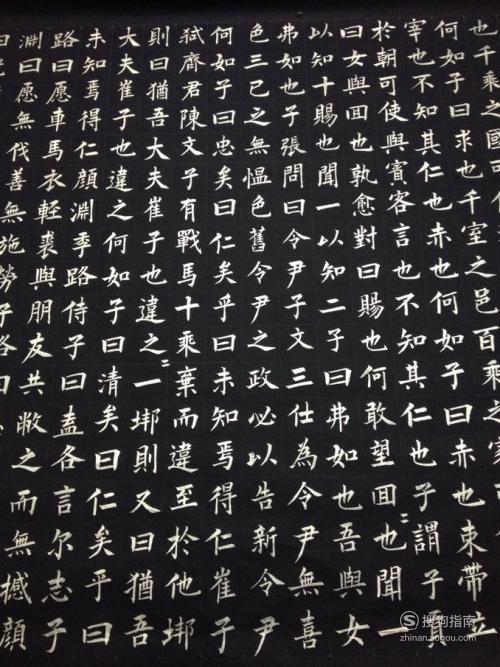 也千乘之國可
何如子曰求也千室之邑百乘之家
宰也不知其仁也赤也何如子曰赤也束帶立
於朝可使與賓客言也不知其仁也子謂子貢
曰女與回也孰愈對曰賜也何敢望回也聞一
以知十賜也聞一以知二子曰弗如也吾與女
弗如也子張問曰令尹子文三仕為令尹無喜
色三已之無慍色舊令尹之政必以告新令尹
何如子曰忠矣曰仁矣乎曰未知焉得仁崔子
弒齊君陳文子有戰馬十乘棄而違至於他邦
則曰猶吾大夫崔子也違之一邦則又曰猶吾
大夫崔子也違之何如子曰清矣曰仁矣乎曰
未知焉得仁顏淵季路侍子曰盍各言尔志子
路曰愿車馬衣輕裘與朋友共敝之而無憾顏
淵曰愿無伐善無施勞子路曰
搜狗指南
zhinan.sogou.com